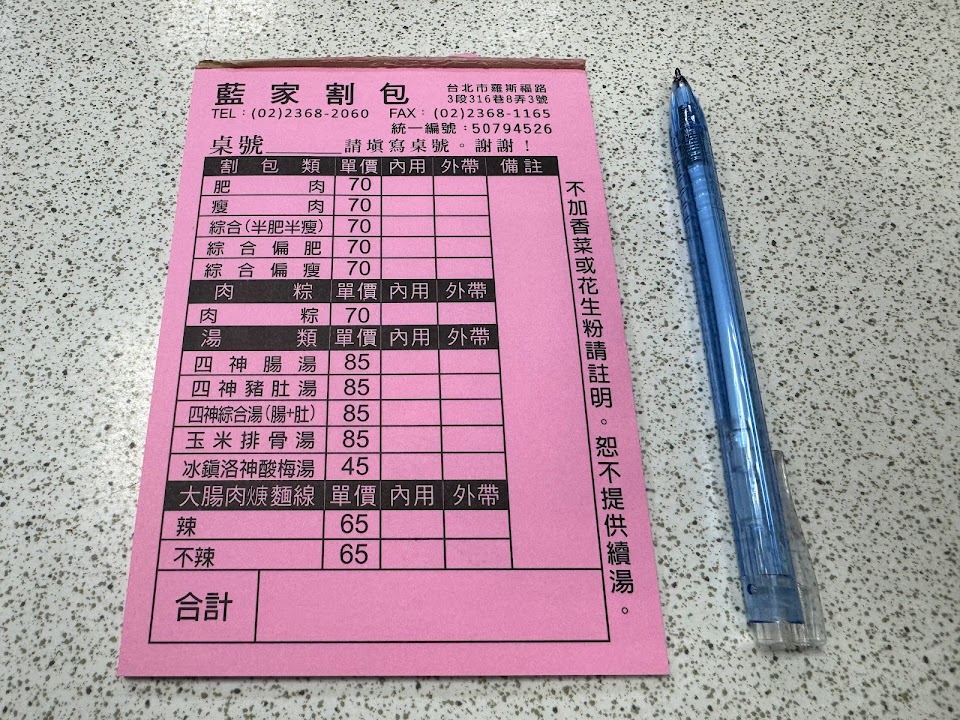 藍家割包 台北市羅斯福路
3段316巷8弄3號
TEL：(02)2368-2060 FAX：(02)2368-1165
統一編號：50794526
桌號 請填寫桌號。謝謝！
割包類 單價 內用 外帶 備註
肥肉 70
瘦肉 70
綜合(半肥半瘦) 70
綜合偏肥 70
綜合偏瘦 70
肉粽 單價 內用 外帶
肉粽 70
湯類 單價 內用 外帶
四神腸湯 85
四神豬肚湯 85
四神綜合湯(腸+肚) 85
玉米排骨湯 85
冰鎮洛神酸梅湯 45
大腸肉焿麵線 單價 內用 外帶
辣 65
不辣 65
合計
不加香菜或花生粉請註明。恕不提供續湯。